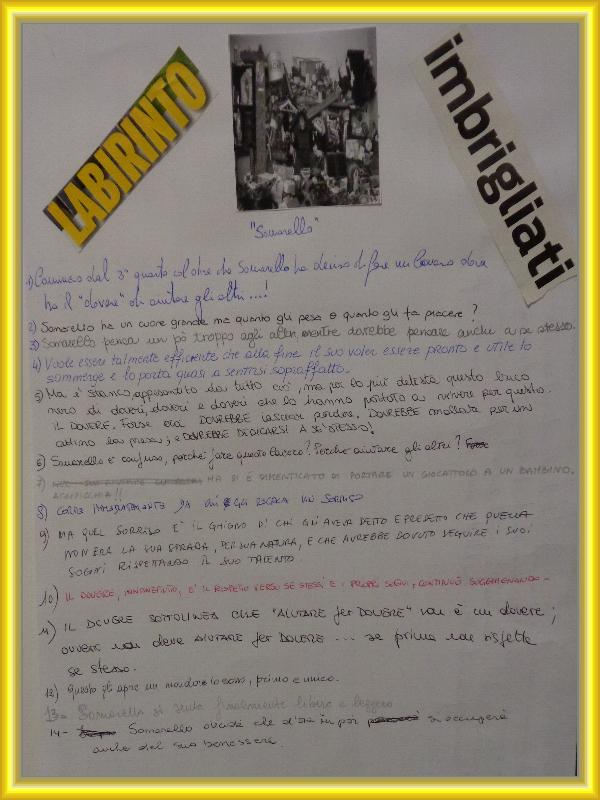 LABIRINTO
imbrigliati
"Somarello"
ha il "dovere" di aiutare gli altri...!
2) Somarello ha un cuore grande ma quanto gli pesa e quanto gli fa piacere?
3) Somarello pensa un pò troppo agli altri mentre dovrebbe pensare anche a se stesso.
4) Vuole essere talmente efficiente che alla fine il suo voler essere pronto e utile lo
sommerge e lo porta quasi a sentirsi sopraffatto.
5) Ma è stanco, appesantito da tutto ciò, ma per lo più detesta questo buco
nero di doveri, doveri e doveri che lo hanno portato a vivere per questo.
IL DOVERE. Forse ora DOVREBBE lasciar perdere. DOVREBBE mollare per un
attimo la presa; e DOVREBBE DEDICARSI A SE STESSO!
6) Somarello è confuso, perché fare questo lavoro? Perché aiutare gli altri?
7) MA SI È DIMENTICATO DI PORTARE UN GIOCATTOLO A UN BAMBINO.
8) CORRE IMMEDIATAMENTE DA LUI E GLI REGALA UN SORRISO
9) MA QUEL SORRISO E' IL GHIGNO DI CHI GLI AVEVA DETTO E PREDETTO CHE QUELLA
NON ERA LA SUA STRADA, PER SUA NATURA, E CHE AVREBBE DOVUTO SEGUIRE I SUOI
SOGNI RISPETTANDO IL SUO TALENTO.
10) IL DOVERE, INNANZITUTTO, E' IL RISPETTO VERSO SE STESSI E I PROPRI SOGNI, CONTINUÒ SOGGHIGNANDO -
11) IL DOVERE SOTTOLINEA CHE "AIUTARE per DOVERE" non è un dovere;
ovvero non deve AIUTARE per DOVERE ... se prima non rispetta
se stesso.
12) Questo gli apre un mondo, primo e unico.
13- Somarello si sente finalmente libero e leggero
14- Somarello decide che d'ora in poi si occuperà
anche del suo benessere.